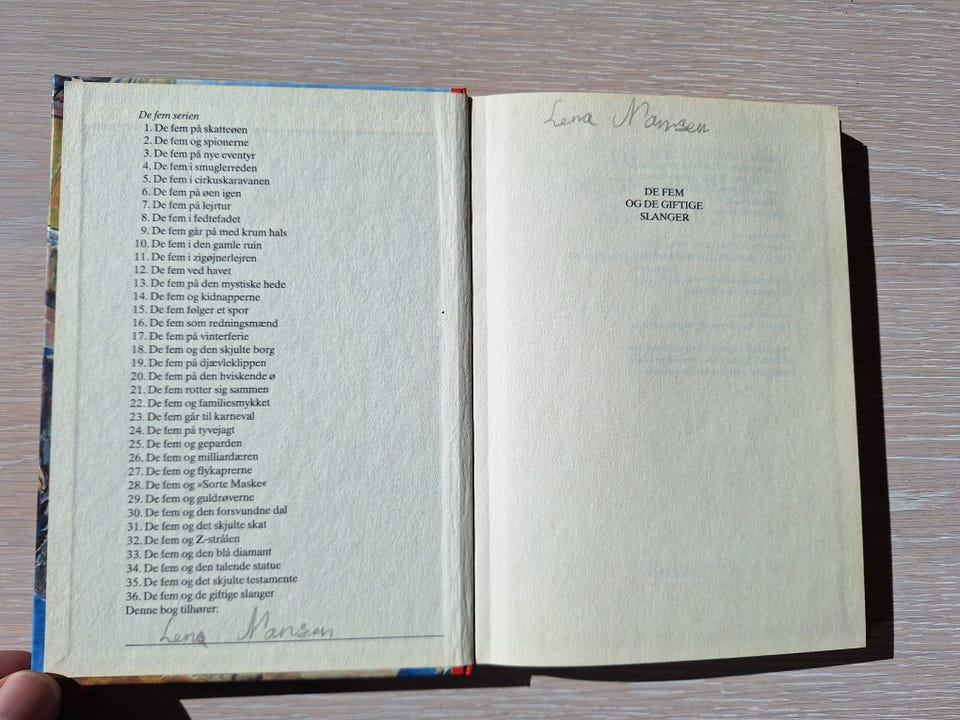 De fem serien
1. De fem på skatteøen
2. De fem og spionerne
3. De fem på nye eventyr
4. De fem i smuglerreden
5. De fem i cirkuskaravanen
6. De fem på øen igen
7. De fem på lejrtur
8. De fem i fedtefadet
9. De fem går på med krum hals
10. De fem i den gamle ruin
11. De fem i zigøjnerlejren
12. De fem ved havet
13. De fem på den mystiske hede
14. De fem og kidnapperne
15. De fem følger et spor
16. De fem som redningsmænd
17. De fem på vinterferie
18. De fem og den skjulte borg
19. De fem på djævleklippen
20. De fem på den hviskende ø
21. De fem rotter sig sammen
22. De fem og familiesmykket
23. De fem går til karneval
24. De fem på tyvejagt
25. De fem og geparden
26. De fem og milliardæren
27. De fem og flykaprerne
28. De fem og »Sorte Maske«
29. De fem og guldrøverne
30. De fem og den forsvundne dal
31. De fem og det skjulte skat
32. De fem og Z-strålen
33. De fem og den blå diamant
34. De fem og den talende statue
35. De fem og det skjulte testamente
36. De fem og de giftige slanger
Denne bog tilhører:
Lena Nansen
Lena Nansen
DE FEM
OG DE GIFTIGE
SLANGER